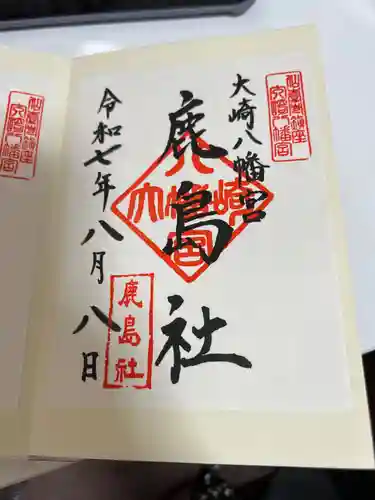 大崎八幡宮
鹿島社
令和七年八月八日
鹿島社
大崎八幡宮